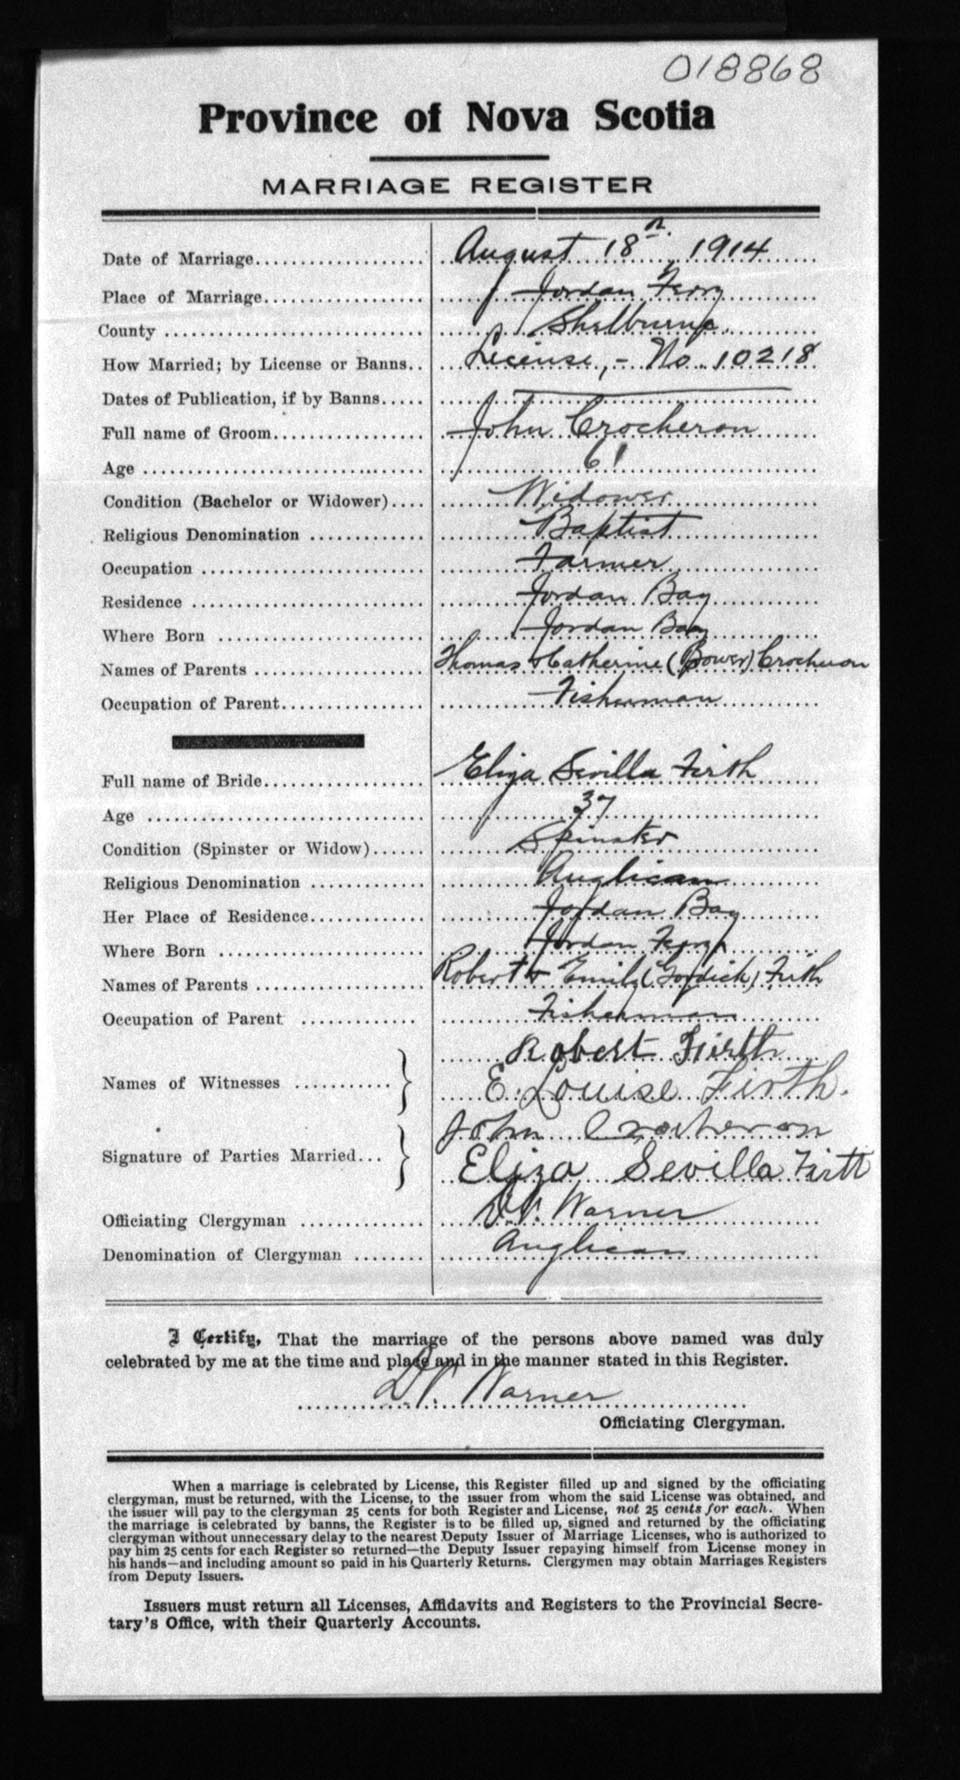 018868
Province of Nova Scotia
MARRIAGE REGISTER
Date of Marriage.................... August 18th, 1914
Place of Marriage................... Jordan Ferry
County ............................ Shelburne
How Married; by License or Banns.. License, - No. 10218
Dates of Publication, if by Banns.....
Full name of Groom................. John Crocheron
Age ............................... 61
Condition (Bachelor or Widower).... Widower
Religious Denomination ............. Baptist
Occupation ........................ Farmer
Residence ......................... Jordan Bay
Where Born ....................... Jordan Bay
Names of Parents .................. Thomas & Catherine (Bower) Crocheron
Occupation of Parent................ Fisherman
Full name of Bride.................. Eliza Sevilla Firth
Age ............................... 37
Condition (Spinster or Widow)...... Spinster
Religious Denomination ............. Anglican
Her Place of Residence............. Jordan Bay
Where Born ....................... Jordan Ferry
Names of Parents .................. Robert & Emily (Goydich) Firth
Occupation of Parent ............. Fisherman
Robert Firth
Names of Witnesses ........... } E. Louise Firth.
John Crocheron
Signature of Parties Married... } Eliza Sevilla Firth
Officiating Clergyman ............. D.V. Warner
Denomination of Clergyman ........ Anglican
I Certify, That the marriage of the persons above named was duly
celebrated by me at the time and place and in the manner stated in this Register.
D.V. Warner
Officiating Clergyman.
When a marriage is celebrated by License, this Register filled up and signed by the officiating
clergyman, must be returned, with the License, to the issuer from whom the said License was obtained, and
the issuer will pay to the clergyman 25 cents for both Register and License, not 25 cents for each. When
the marriage is celebrated by banns, the Register is to be filled up, signed and returned by the officiating
clergyman without unnecessary delay to the nearest Deputy Issuer of Marriage Licenses, who is authorized to
pay him 25 cents for each Register so returned—the Deputy Issuer repaying himself from License money in
his hands—and including amount so paid in his Quarterly Returns. Clergymen may obtain Marriages Registers
from Deputy Issuers.
Issuers must return all Licenses, Affidavits and Registers to the Provincial Secre-
tary's Office, with their Quarterly Accounts.